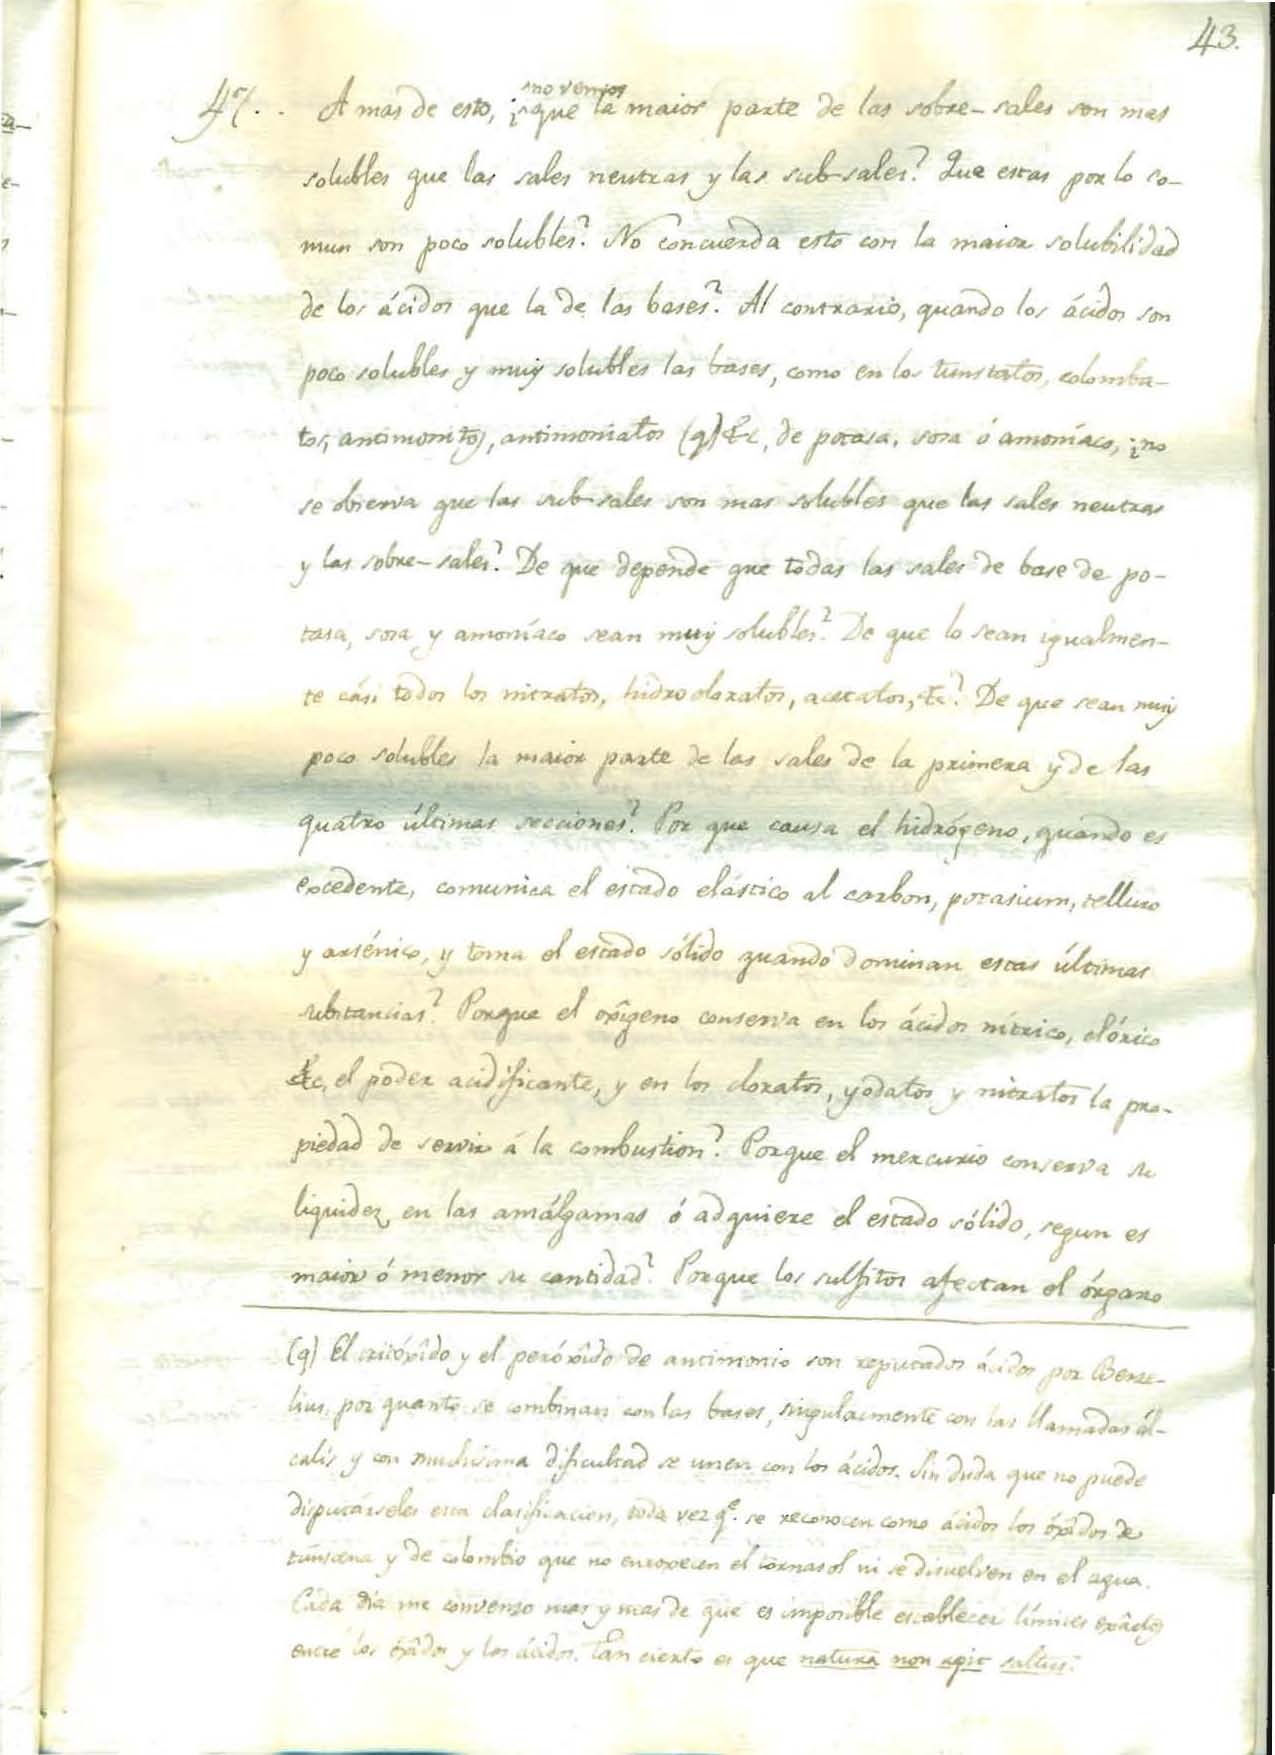 43.
47.. A mas de esto, ¿no vemos que la maior parte de las sobre-sales son mas
solubles que las sales neutras y las sub-sales? Que estas por lo co-
mun son poco solubles? No concuerda esto con la maior solubilidad
de los ácidos que la de las bases? Al contrario, quando los ácidos son
poco solubles y muy solubles las bases, como en los tunstatos, colomba-
tos, antimonitos, antimoniatos (q) &c, de potasa, sosa ó amoníaco, ¿no
se observa que las sub-sales son mas solubles que las sales neutras
y las sobre-sales? De que depende que todas las sales de base de po-
tasa, sosa y amoníaco sean muy solubles? De que lo sean igualmen-
te cási todos los nitratos, hidrocloratos, acetatos, &c? De que sean muy
poco solubles la maior parte de las sales de la primera y de las
quatro últimas secciones? Por que causa el hidrógeno, quando es
excedente, comunica el estado elástico al carbon, potasium, telluro
y arsénico, y toma el estado sólido quando dominan estas últimas
substancias? Porque el oxîgeno conserva en los ácidos nítrico, clórico
&c, el poder acidificante, y en los cloratos, yodatos y nitratos la pro-
piedad de servir á la combustion? Porque el mercurio conserva su
liquidez en las amálgamas ó adquiere el estado sólido, segun es
maior ó menor su cantidad? Porque los sulfitos afectan el órgano
(q) El tritóxîdo y el peróxîdo de antimonio son reputados ácidos por Berze-
lius, por quanto se combinan con las bases, singularmente con las llamadas ál-
calis, y con muchísima dificultad se unen con los ácidos. Sin duda que no puede
disputárseles esta clasificacion, toda vez qe. se reconocen como ácidos los óxîdos de
túnstena y de colombio que no enroxecen el tornasol ni se disuelven en el agua.
Cada dia me convenzo mas y mas de que es imposible establecer límites exâctos
entre los óxîdos y los ácidos. Tan cierto es que natura non agit saltus.